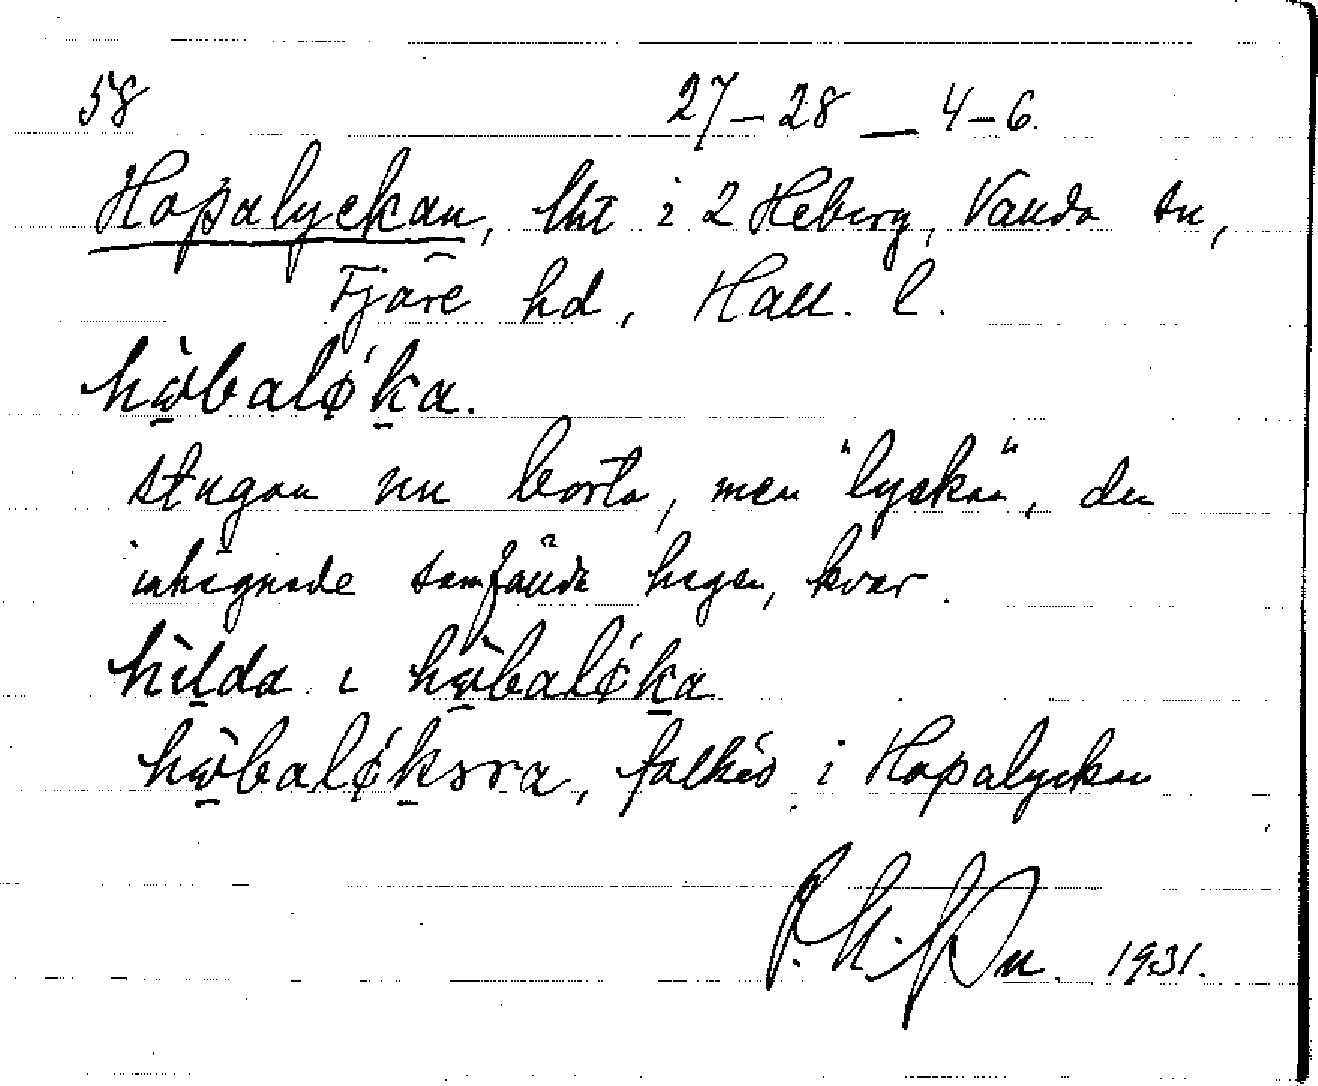 58 27–28 – 4–6.
Hopalyckan, lht i 2 Heberg, Vanda sn,
Fjäre hd, Hall. l.
hòbaløka.
stugan nu borta, men "lyckan", den
inhägnade hagen, kvar.
hilda i hòbaløka
hòbaløksra, folket i Hopalyckan
1931.